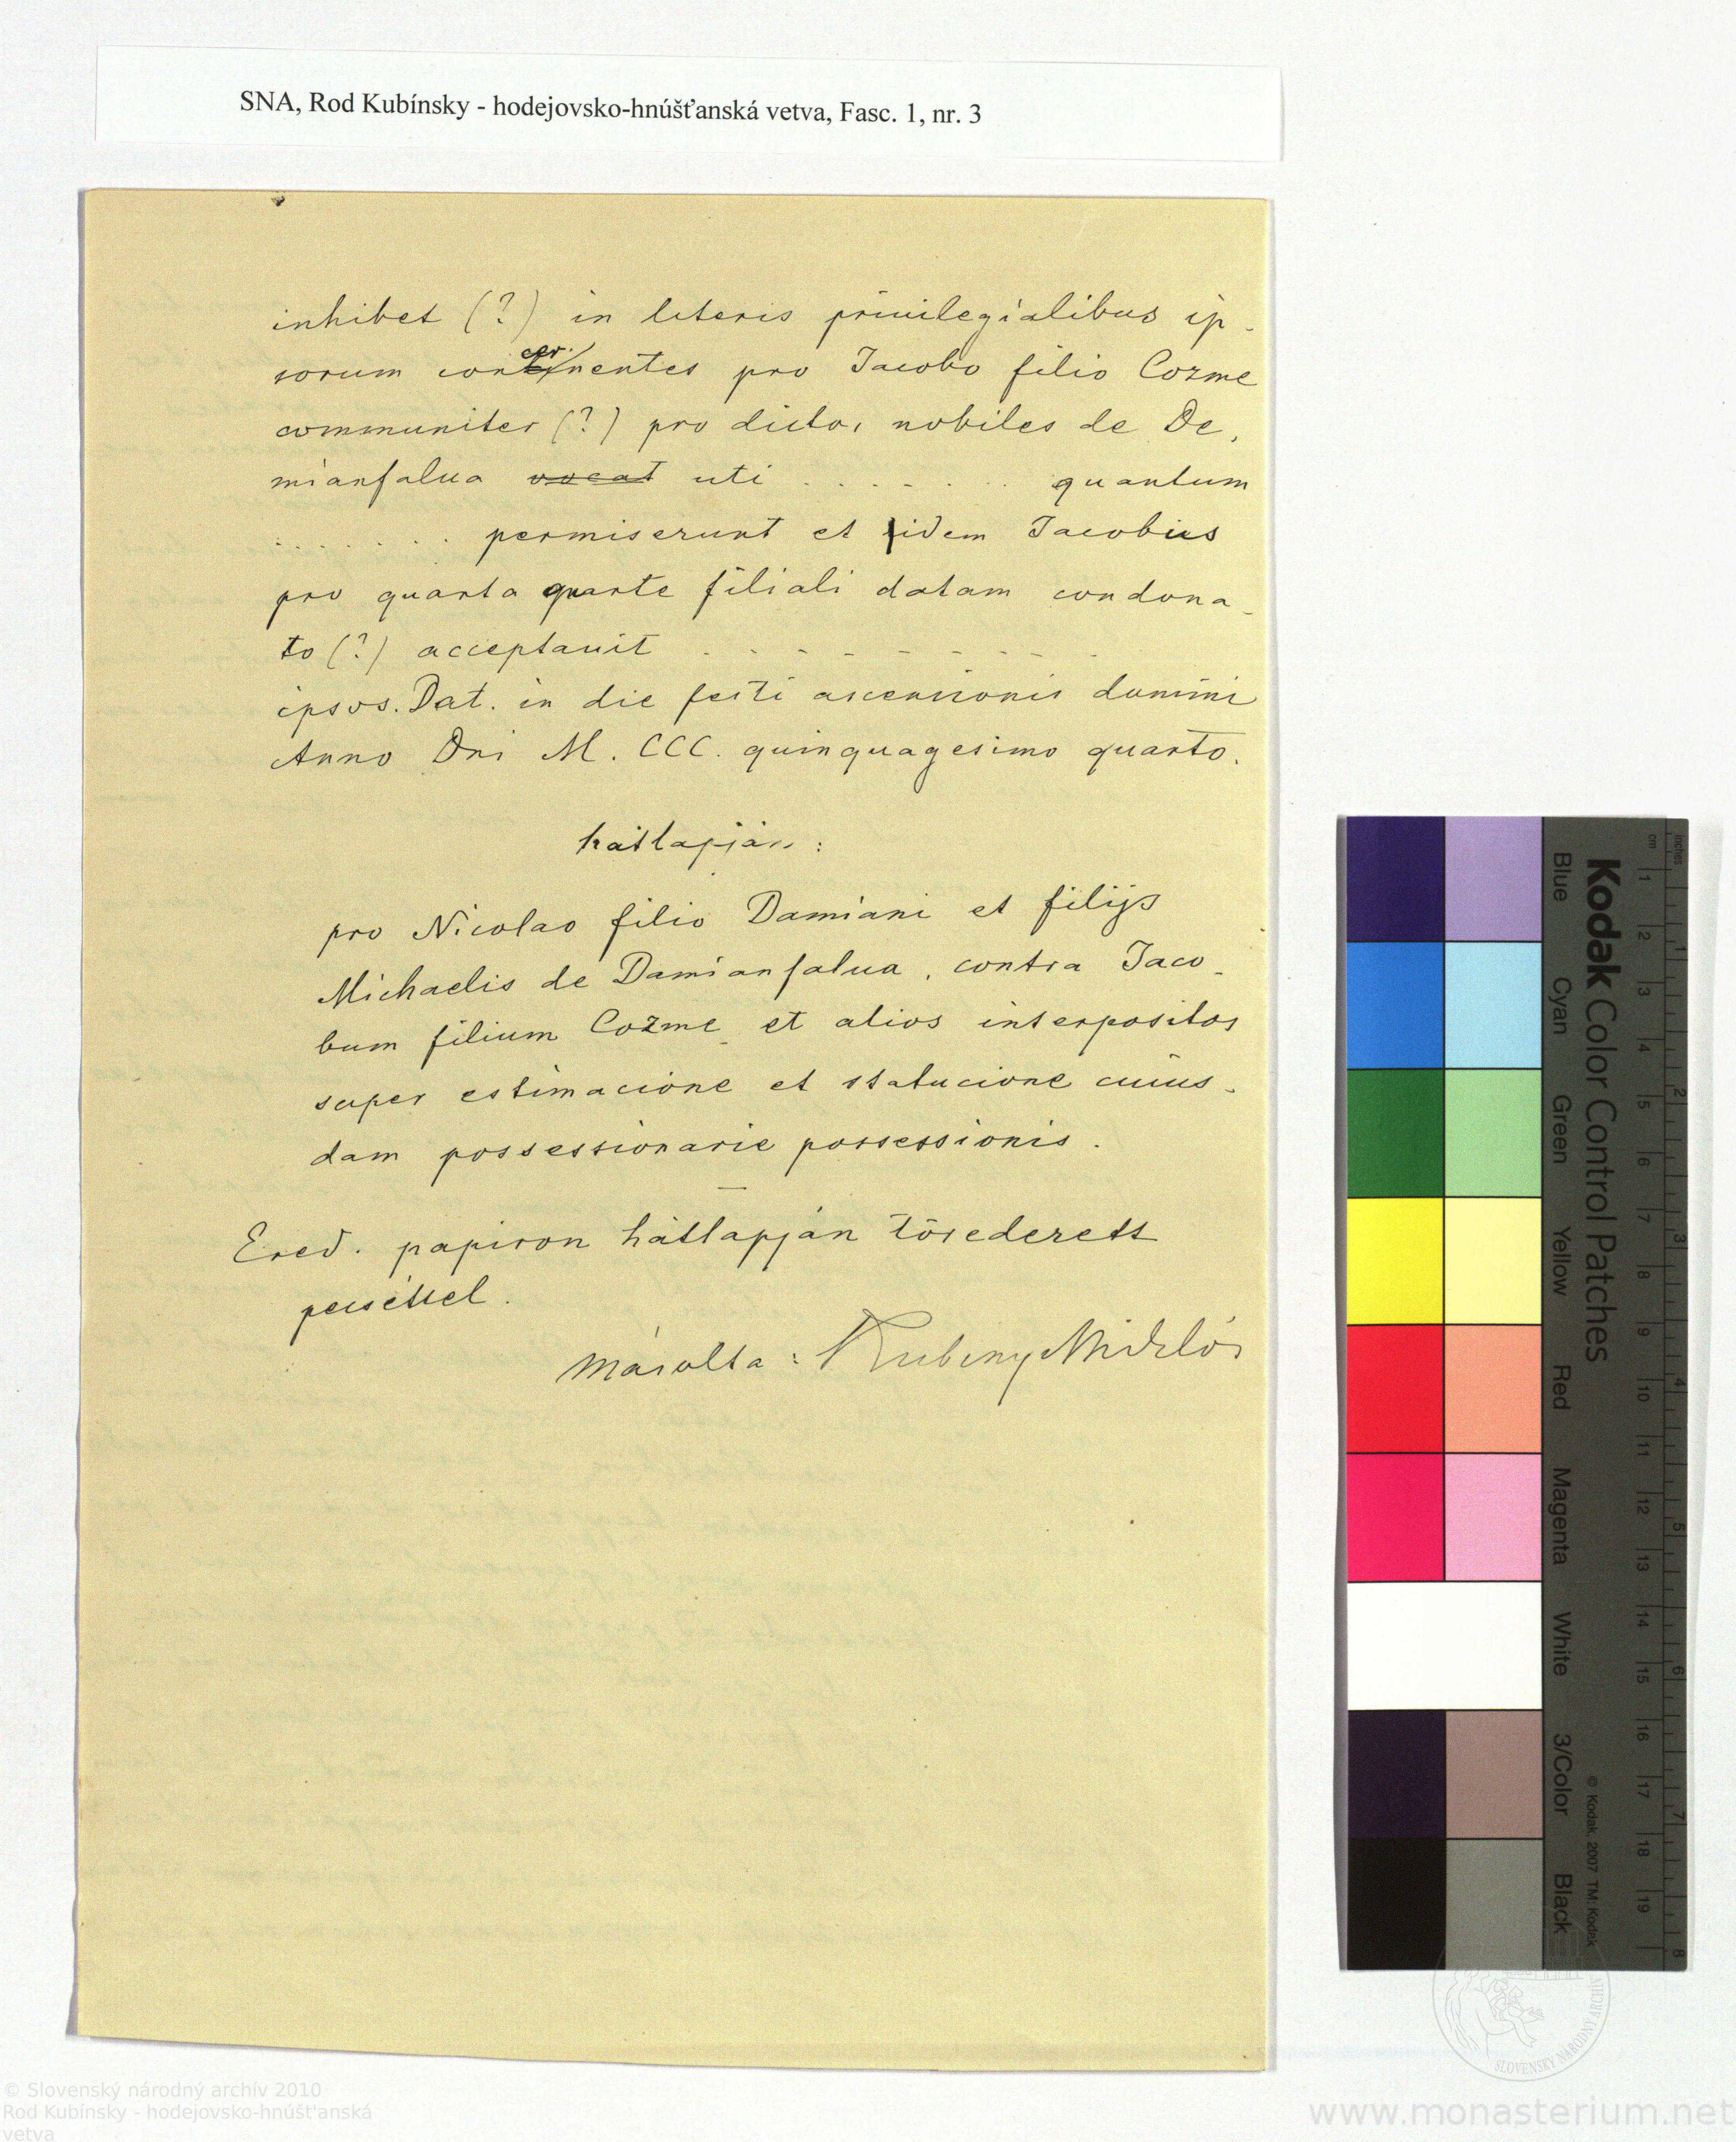 SNA, Rod Kubínsky - hodejovsko-hnúšťanská vetva, Fasc. 1, nr. 3
inhibet (?) in literis priuilegialibus ip-
sorum concernentes pro Jacobo filio Cozme
communiter (?) pro dictos nobiles de De-
mianfalua vocat uti . . . . . . quantum
. . . . . . . permiserunt et idem Jacobus
pro quarta quarte filiali datam condona-
to (?) acceptauit . - . - - - - - - .
ipsos. Dat. in die festi ascensionis domini
Anno Dni M. CCC. quinquagesimo quarto.
hátlapján:
pro Nicolao filio Damiani et filijs
Michaelis de Damianfalua, contra Jaco-
bum filium Cozme et alios interpositos
super estimacione et statucione cuius-
dam possessionarie possessionis.
Ered. papiron hátlapján töredezett
pecséttel.
Másolta: Kubinyi Miklós
Kodak Color Control Patches
Blue Cyan Green Yellow Red Magenta White 3/Color Black
© Kodak, 2007 TM: Kodak
inches
cm
1 2 3 4 5 6 7 8 9 10 11 12 13 14 15 16 17 18 19
1 2 3 4 5 6 7 8
SLOVENSKÝ NÁRODNÝ ARCHÍV
© Slovenský národný archív 2010
Rod Kubínsky - hodejovsko-hnúšt'anská
vetva
www.monasterium.net